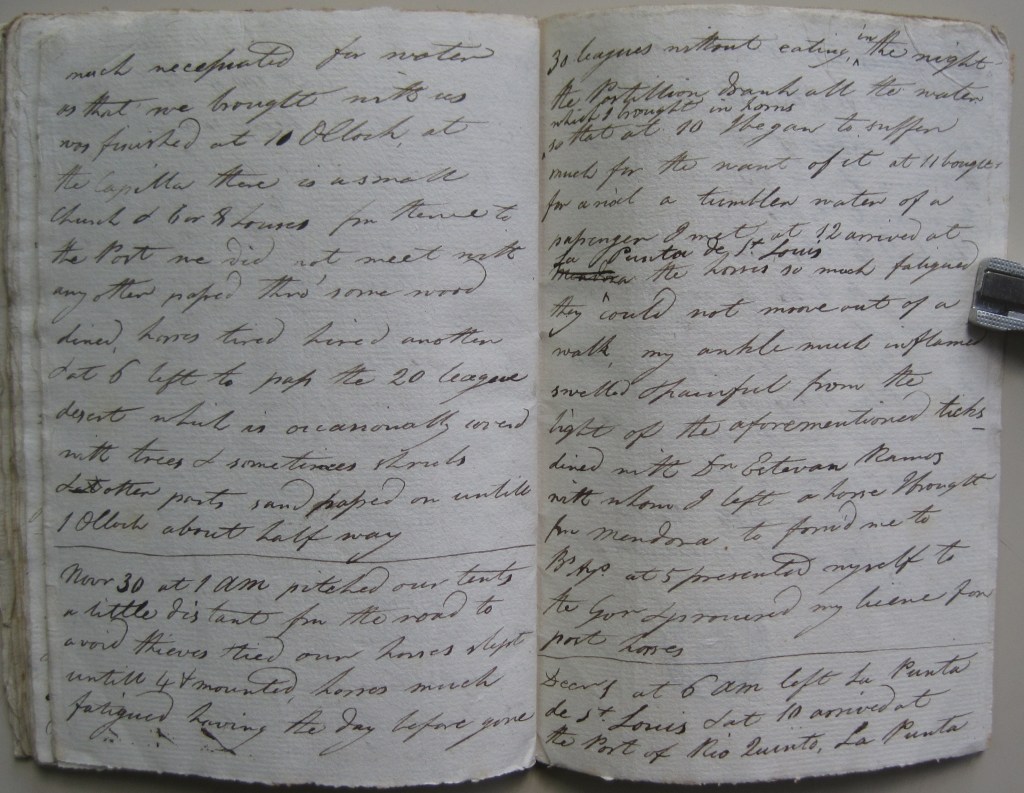 much necessiated for water
as that we brought with us
was finished at 10 OClock, at
the Capilla there is a small
Church & 6 or 8 houses fm thence to
the Post we did not meet with
any other passed thro' some wood
dined, horses tired hired another
& at 6 left to pass the 20 league
desert which is occasionally coverd
with trees & sometimes shrubs
& other parts sand passed on untill
1 OClock about half way
Novr 30 at 1 am pitched our tents
a little distant fm the road to
avoid thieves tied our horses slept
untill 4 & mounted, horses much
fatigued having the day before gone
30 leagues without eating, in the night
the Postillion drank all the water
which I brought in horns
so that at 10 I began to suffer
much for the want of it at 11 bought
for a rial a tumbler water of a
passenger I met, at 12 arrived at
La Punta de St. Louis
the horses so much fatigued
they could not moove out of a
walk, my ankle much inflamed
swelled & painful from the
bight of the aforementioned ticks
dined with Dn Estevan Ramos
with whom I left a horse I brought
fm Mendoza, to forwd me to
Bs Ays at 5 presented myself to
the Govr & procured my licence for
post horses
Decr 1 at 6 am left La Punta
de St. Louis & at 10 arrived at
the Post of Rio Quinto, La Punta